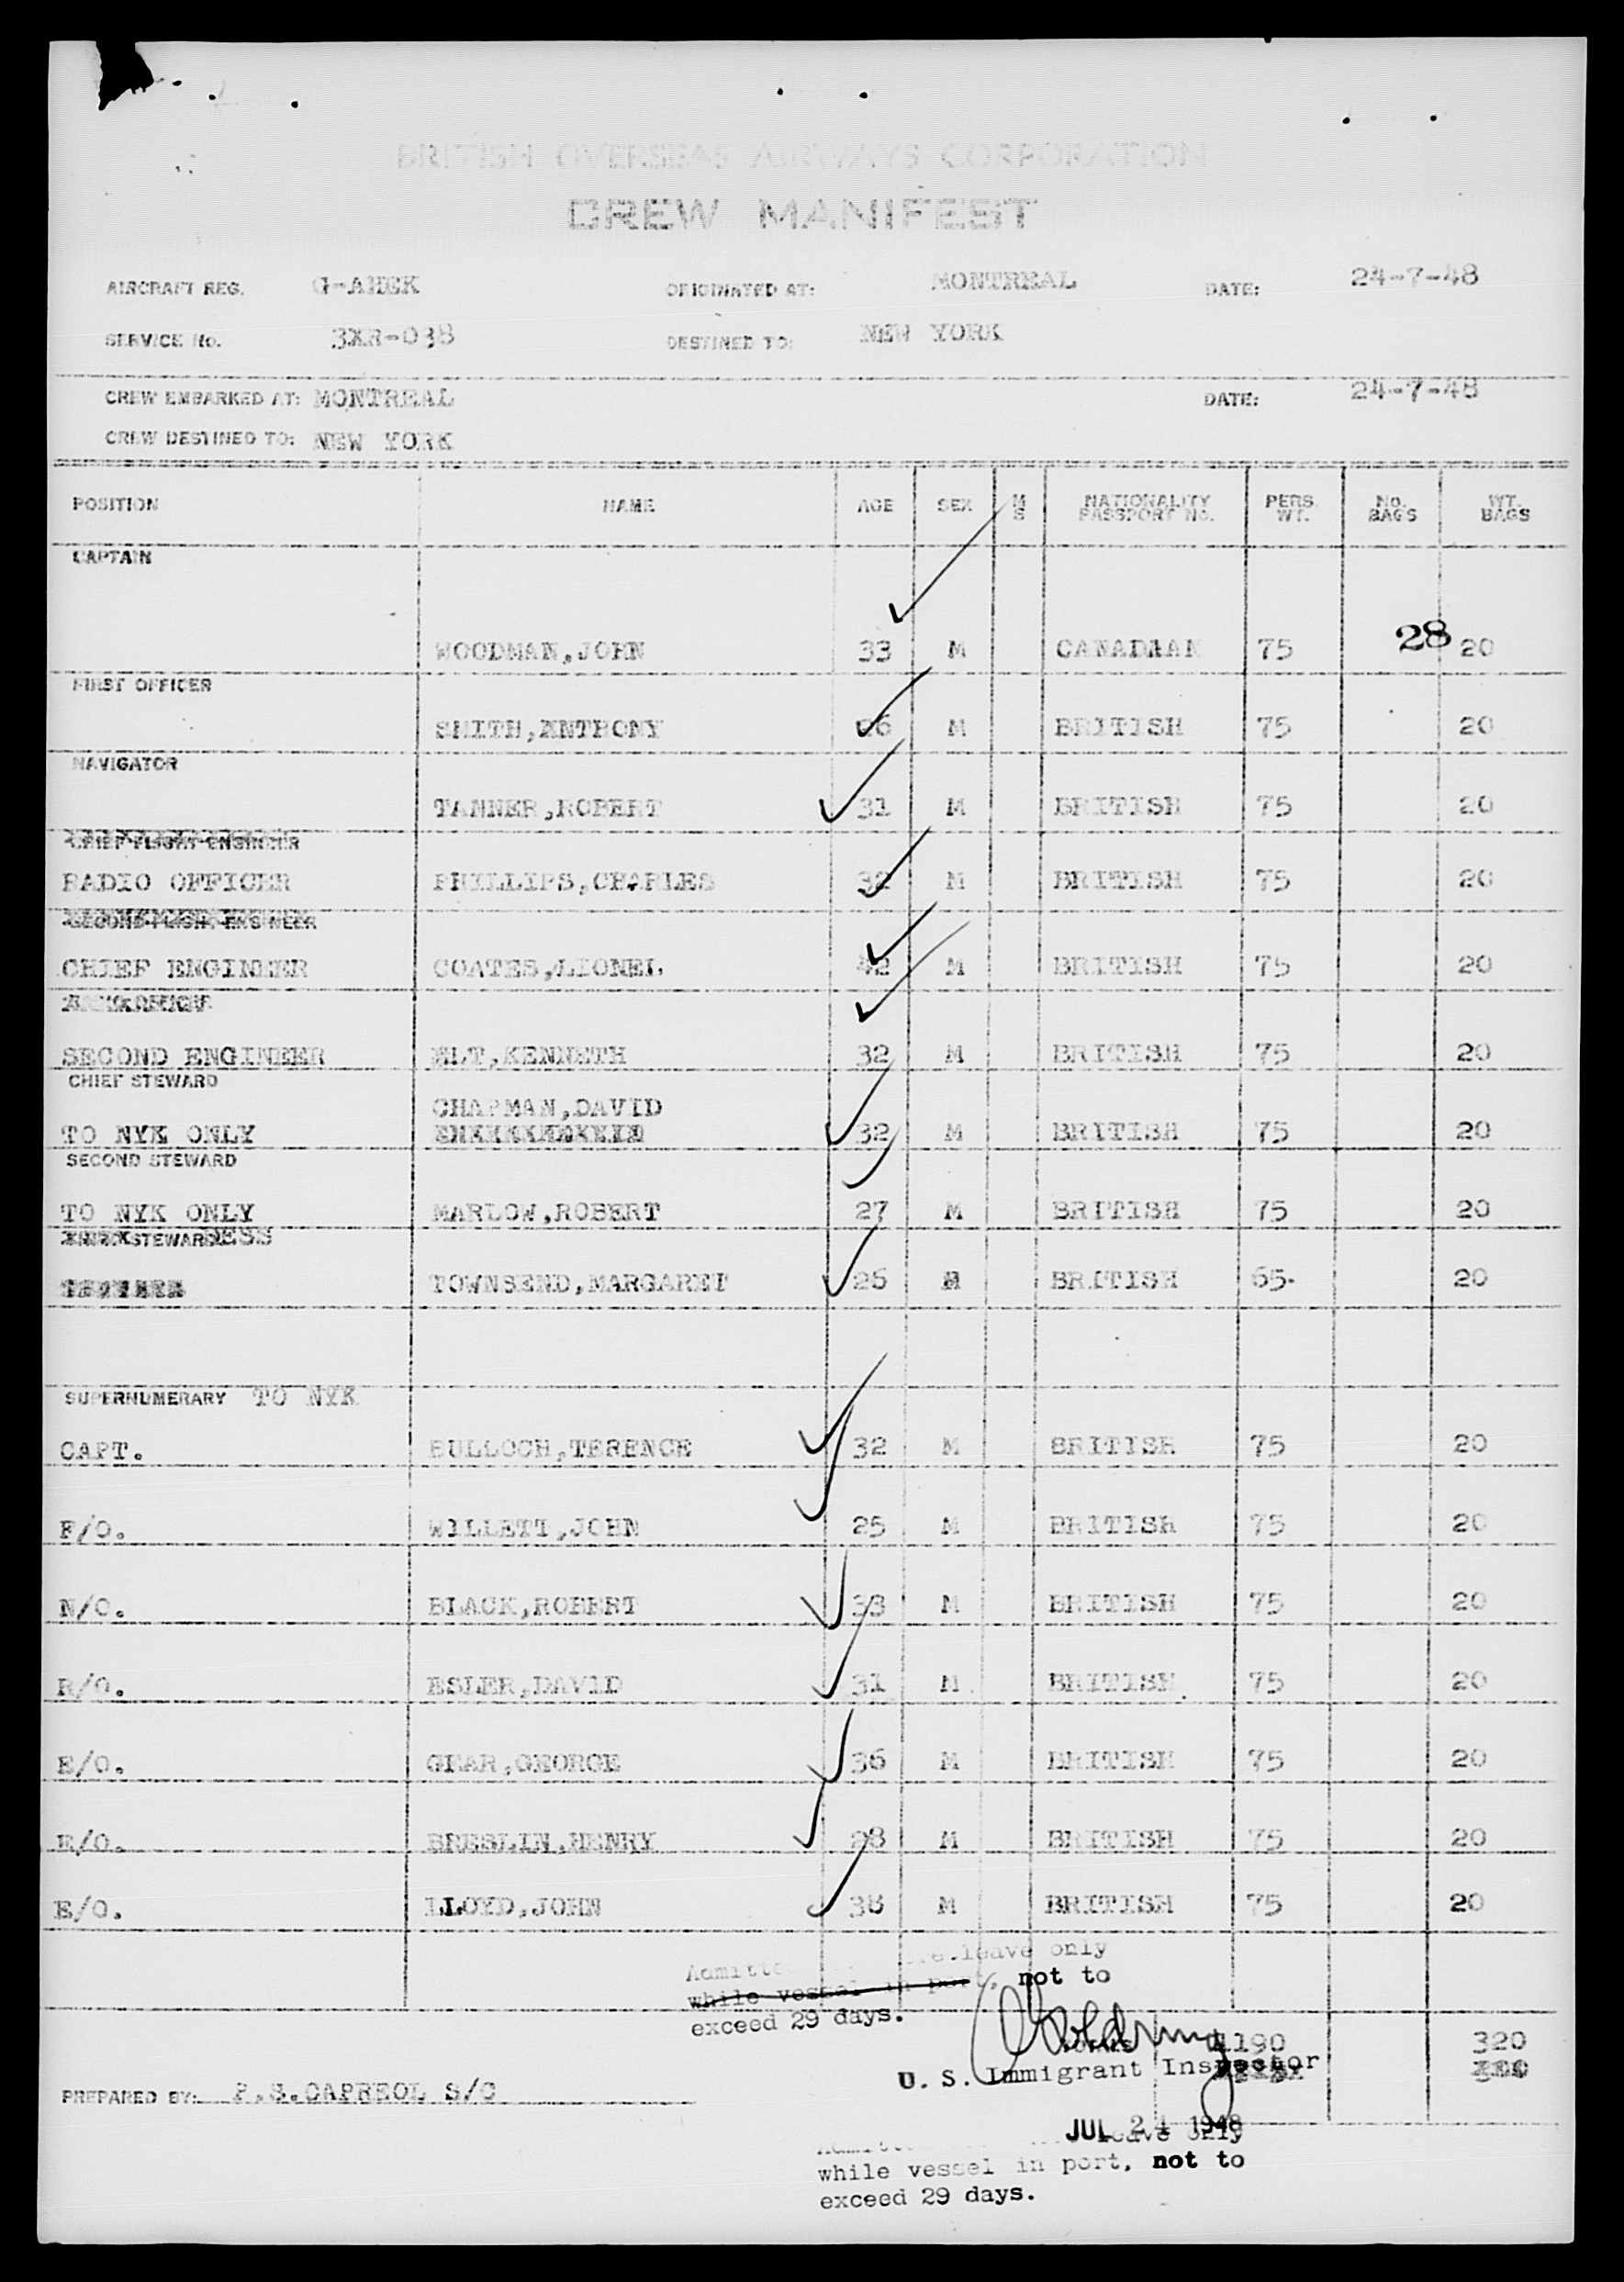 BRITISH OVERSEAS AIRWAYS CORPORATION
CREW MANIFEST
AIRCRAFT REG. G-AHEK ORIGINATED AT: MONTREAL DATE: 24-7-48
SERVICE No. 3XR-038 DESTINED TO: NEW YORK
CREW EMBARKED AT: MONTREAL DATE: 24-7-48
CREW DESTINED TO: NEW YORK
POSITION NAME AGE SEX M S NATIONALITY PASSPORT No. PERS. WT. No. BAGS WT. BAGS
CAPTAIN
WOODMAN,JOHN 33 M CANADIAN 75 28 20
FIRST OFFICER
SMITH,ANTHONY 26 M BRITISH 75 20
NAVIGATOR
TANNER,ROBERT 31 M BRITISH 75 20
CHIEF FLIGHT ENGINEER
RADIO OFFICER PHILLIPS,CHARLES 32 M BRITISH 75 20
SECOND FLIGHT ENGINEER
CHIEF ENGINEER COATES,LIONEL 42 M BRITISH 75 20
SECOND ENGINEER KENNETH 32 M BRITISH 75 20
CHIEF STEWARD
CHAPMAN,DAVID
TO NYK ONLY 32 M BRITISH 75 20
SECOND STEWARD
TO NYK ONLY MARLOW,ROBERT 27 M BRITISH 75 20
STEWARDESS
TOWNSEND,MARGARET 26 BRITISH 65. 20
SUPERNUMERARY TO NYK
CAPT. BULLOCH,TERENCE 32 M BRITISH 75 20
F/O. WILLETT,JOHN 25 M BRITISH 75 20
N/O. BLACK,ROBERT 33 M BRITISH 75 20
R/O. ESLER,DAVID 31 M BRITISH 75 20
E/O. GEAR,GEORGE 36 M BRITISH 75 20
E/O. BRESLIN,HENRY 28 M BRITISH 75 20
E/O. LLOYD,JOHN 38 M BRITISH 75 20
leave only
while vessel in port, not to
exceed 29 days.
1190 320
U. S. Immigrant Inspector
PREPARED BY: P.S.CAPREOL S/O
JUL 24 1948
leave only
while vessel in port, not to
exceed 29 days.